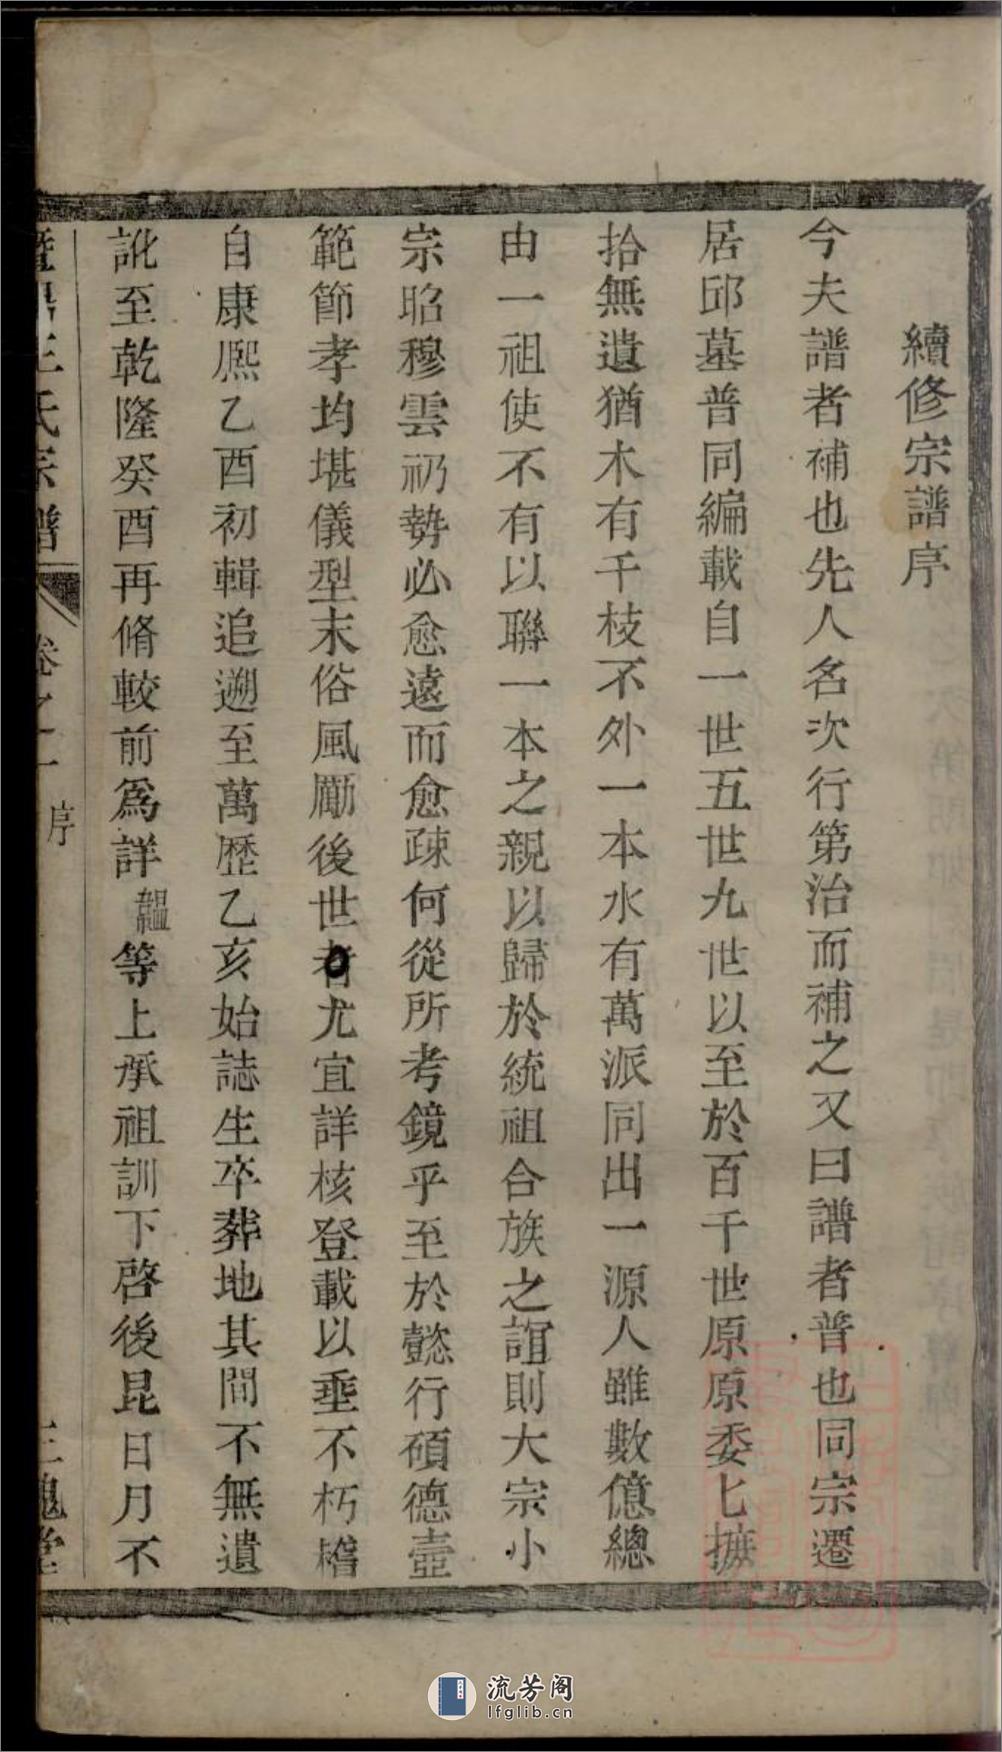 續修宗譜序
今夫譜者補也先人名次行第治而補之又曰譜者普也同宗遷
居邱墓普同編載自一世五世九世以至於百千世原原委匕摭
拾無遺猶木有千枝不外一本水有萬派同出一源人雖數億總
由一祖使不有以聯一本之親以歸於統祖合族之誼則大宗小
宗昭穆雲礽勢必愈遠而愈疎何從所考鏡乎至於懿行碩德壼
範節孝均堪儀型末俗風勵後世者尤宜詳核登載以垂不朽稽
自康熈乙酉初輯追遡至萬歷乙亥始誌生卒葬地其間不無遺
訛至乾隆癸酉再脩較前爲詳等上承祖訓下啓後昆日月不
暨陽王氏宗譜 卷之一 序 三槐堂
流芳阁
lfglib.cn